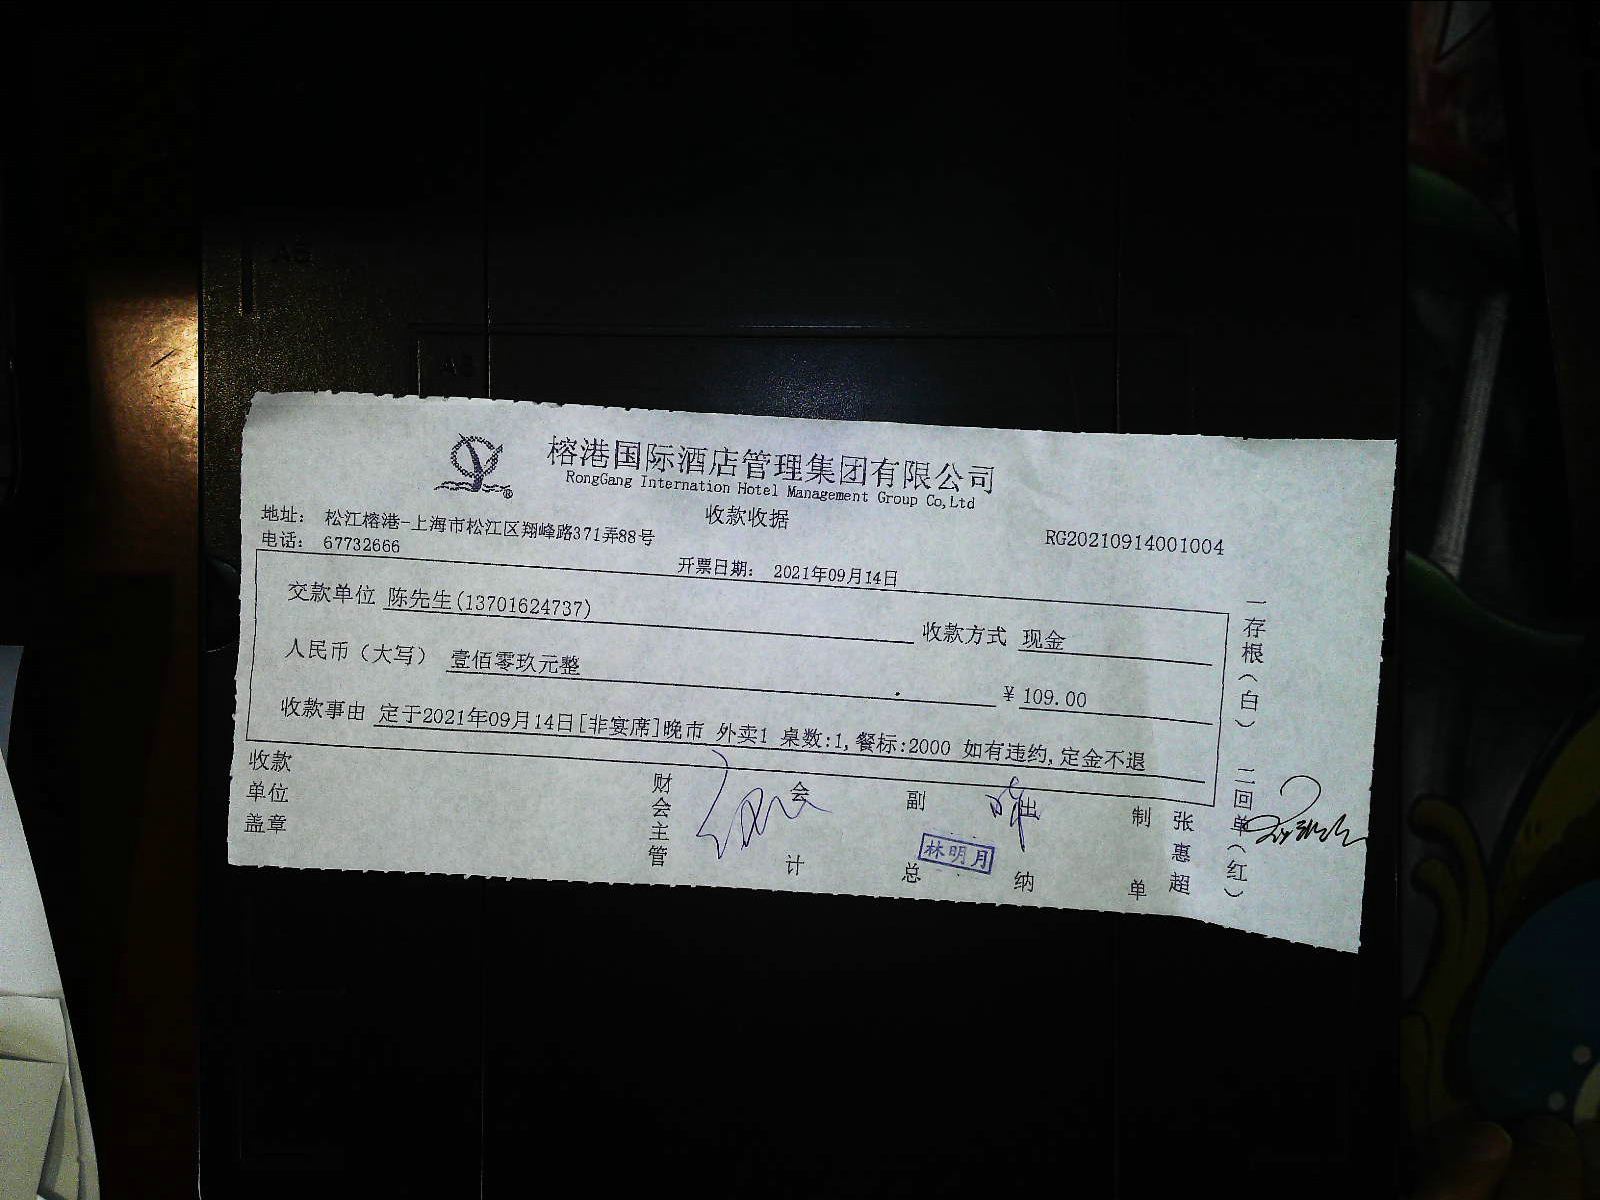 榕港国际酒店管理集团有限公司
RongGang Internation Hotel Management Group Co,Ltd
收款收据
地址： 松江榕港-上海市松江区翔峰路371弄88号
RG20210914001004
电话： 67732666
开票日期： 2021年09月14日
交款单位 陈先生(13701624737)
收款方式 现金
人民币（大写） 壹佰零玖元整
¥ 109.00
收款事由 定于2021年09月14日[非宴席]晚市 外卖1 桌数:1,餐标:2000 如有违约,定金不退
收款单位盖章
财会主管
会计
副总
林明月
出纳
制单
张惠超
一存根（白）
二回单（红）
A5